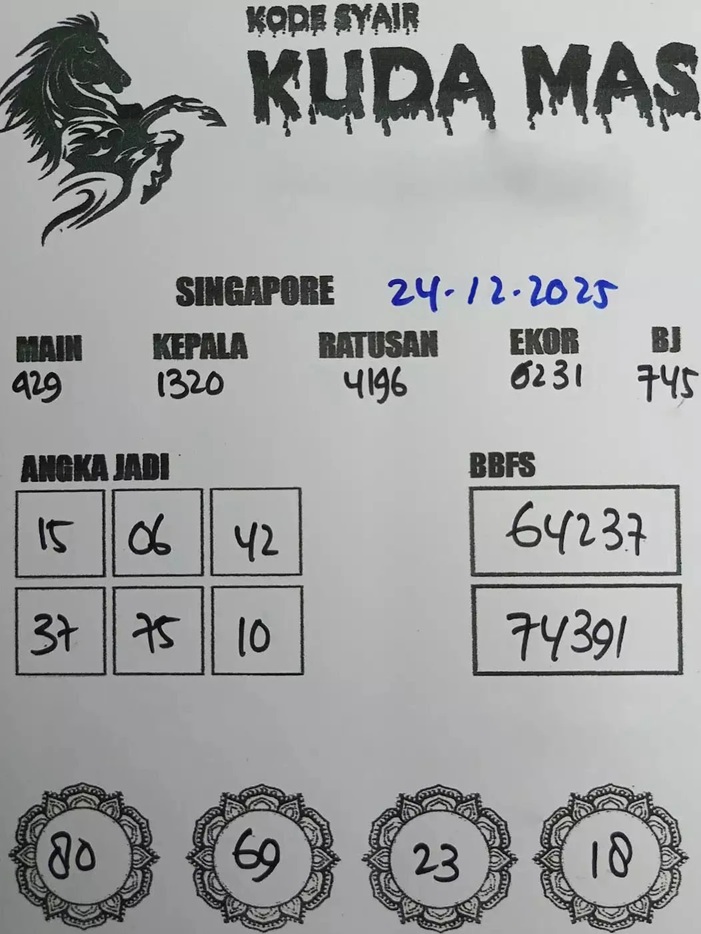 KODE SYAIR
KUDA MAS
SINGAPORE 24-12-2025
MAIN KEPALA RATUSAN EKOR BJ
929 1320 4196 0231 745
ANGKA JADI BBFS
15 06 42 64237
37 75 10 74391
80 69 23 18